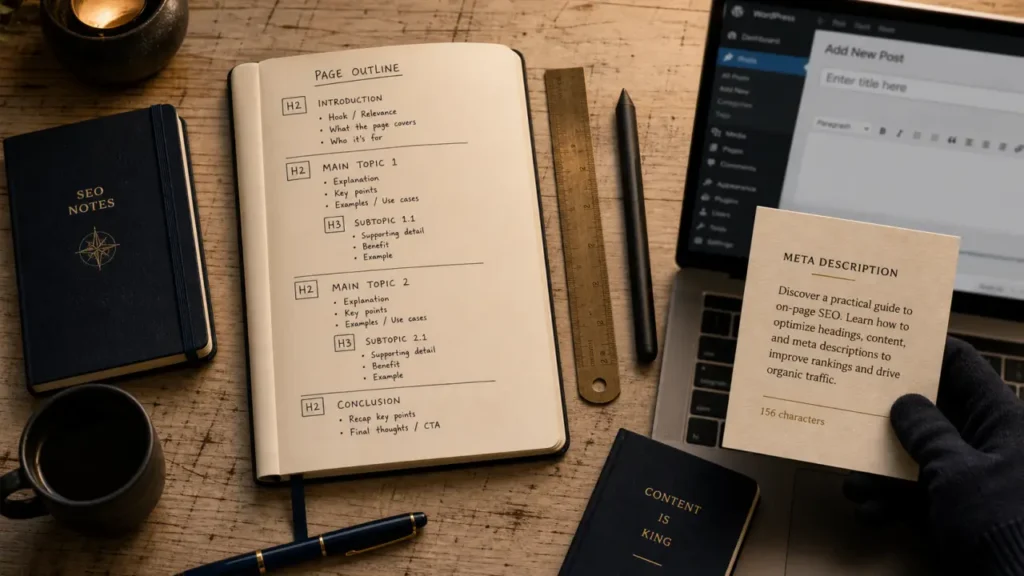 SEO
NOTES
PAGE OUTLINE
H2 INTRODUCTION
• Hook / Relevance
• What the page covers
• Who it's for
H2 MAIN TOPIC 1
• Explanation
• Key points
• Examples / Use cases
H3 SUBTOPIC 1.1
• Supporting detail
• Benefit
• Example
H2 MAIN TOPIC 2
• Explanation
• Key points
• Examples / Use cases
H3 SUBTOPIC 2.1
• Supporting detail
• Benefit
• Example
H2 CONCLUSION
• Recap key points
• Final thoughts / CTA
WordPress
Dashboard
Posts
All Posts
Add New
Categories
Tags
Media
Pages
Comments
Appearance
Plugins
Users
Tools
Settings
Add New Post
Enter title here
Paragraph
META DESCRIPTION
Discover a practical guide to
on-page SEO. Learn how to
optimize headings, content,
and meta descriptions to
improve rankings and drive
organic traffic.
156 characters
CONTENT
IS
KING